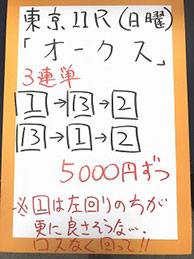 東京11R(日曜)
「オークス」
3連単
1→13→2
13→1→2
5000円ずつ
※1は左回りの方が
更に良さそうな…
ロスなく回って!!